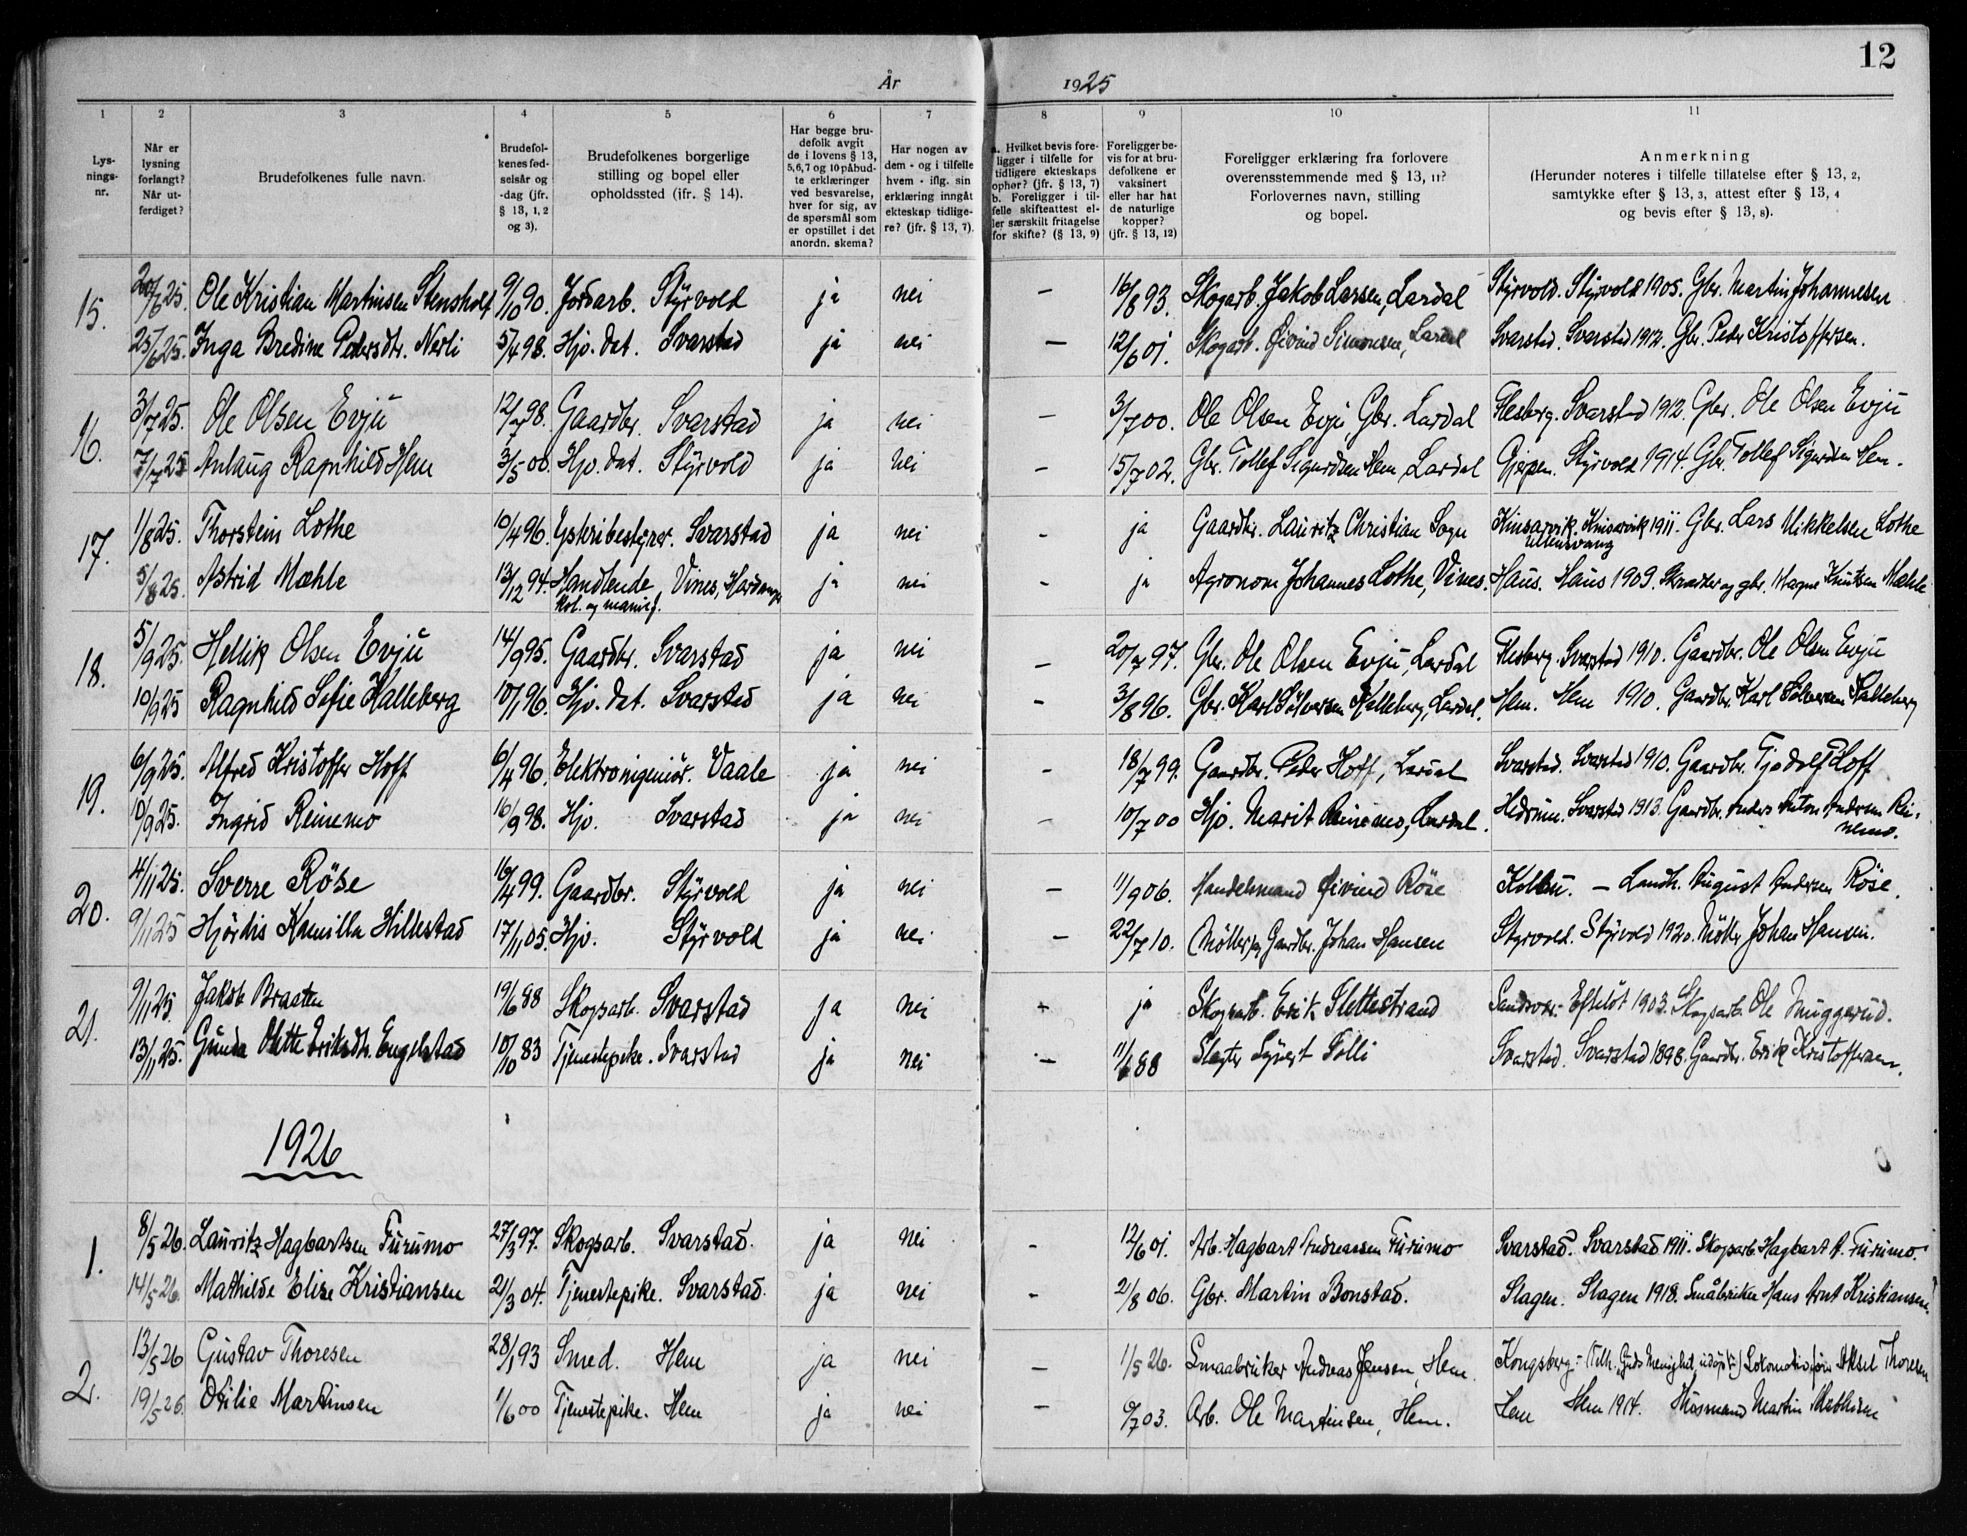 12
År 1925
1 2 3 4 5 6 7 8 9 10 11
Lys-
nings-
nr.
Når er
lysning
forlangt?
Når ut-
ferdiget?
Brudefolkenes fulle navn.
Brudefol-
kenes fød-
selsår og
-dag (jfr.
§ 13, 1, 2
og 3).
Brudefolkenes borgerlige
stilling og bopel eller
opholdssted (ifr. § 14).
Har begge bru-
defolk avgit
de i lovens § 13,
5,6,7 og 10 påbud-
te erklæringer
ved besvarelse,
hver for sig, av
de spørsmål som
er opstillet i det
anordn. skema?
Har nogen av
dem - og i tilfelle
hvem - iflg. sin
erklæring inngåt
ekteskap tidlige-
re? (jfr. § 13, 7).
a. Hvilket bevis fore-
ligger i tilfelle for
tidligere ekteskaps
ophør? (jfr. § 13, 7)
b. Foreligger i til-
felle skifteattest el-
ler særskilt fritagelse
for skifte? (§ 13, 9)
Foreligger be-
vis for at bru-
defolkene er
vaksinert
eller har hat
de naturlige
kopper?
(jfr. § 13, 12)
Foreligger erklæring fra forlovere
overensstemmende med § 13, 11?
Forlovernes navn, stilling
og bopel.
Anmerkning
(Herunder noteres i tilfelle tillatelse efter § 13, 2,
samtykke efter § 13, 3, attest efter § 13, 4
og bevis efter § 13, 8).
15. 20/6 25. Ole Kristian Martinsen Stensholt 9/10 90. Jordarb. Styrvold ja nei — 16/8 93. Skogarb. Jakob Larsen, Lardal Styrvold. Styrvold 1905. Gbr. Martin Johannesen
25/6 25. Inga Bredine Pedersdtr. Nerli 5/4 98. Hjv. dat. Svarstad ja nei — 12/6 01. Skogarb. Øivind Simonsen, Lardal Svarstad. Svarstad 1912. Gbr. Peder Kristoffersen.
16. 3/7 25. Ole Olsen Evju 12/7 98. Gaardbr. Svarstad ja nei — 3/7 00. Ole Olsen Evju Gbr. Lardal Flesberg. Svarstad 1912. Gbr. Ole Olsen Evju
7/7 25 Anlaug Ragnhild Hem 3/5 00. Hjv. dat. Styrvold ja nei — 15/7 02. Gbr. Tollef Sigurdsen Hem, Lardal Gjerpen. Styrvold 1914. Gbr. Tollef Sigurdsen Hem.
17. 1/8 25. Thorstein Lothe 10/4 96. Ysteribestyrer. Svarstad ja nei - ja Gaardbr. Lauritz Christian Sogn Kinsarvik. Kinsarvik 1911. Gbr. Lars Mikkelsen Lothe
Ullensvang
5/8 25. Astrid Mæhle 13/12 94. Handlende Vines, Hardanger ja nei - ja Agronom Johannes Lothe, Vines. Haus. Haus 1909. Skrædder og gbr. Magne Knutsen Mæhle
kol. og manuf.
18. 5/9 25. Hellik Olsen Evju 14/9 95. Gaardbr. Svarstad ja nei — 20/7 97. Gbr. Ole Olsen Evju, Lardal Flesberg. Svarstad 1910. Gaardbr. Ole Olsen Evju
10/9 25 Ragnhild Sofie Kalleberg 10/1 96. Hjv. dat. Svarstad ja nei - 3/8 96. Gbr. Karl Sølversen Kalleberg, Lardal. Hem. Hem 1910. Gaardbr. Karl Sølversen Kalleberg
19. 6/9 25. Alfred Kristoffer Hoff 6/4 96. Elektroingeniör. Vaale ja nei - 18/7 99. Gaardbr. Peder Hoff, Lardal Svarstad. Svarstad 1910. Gaardbr. Hoff
10/9 25. Ingrid Reinemo 16/9 98. Hjv. Svarstad ja nei - 10/7 00 Hjv. Marit Reinemo, Lardal. Hedrum. Svarstad 1913. Gaardbr. Anders Anton Andersen Rei-
nemo.
20. 4/11 25. Sverre Röse 16/4 99. Gaardbr. Styrvold ja nei — 11/9 06. Handelsmand Øivind Röse Kolbu. — Landh. August Andersen Röse.
9/11 25 Hjördis Kamilla Hillestad 17/11 05. Hjv. Styrvold ja nei — 22/7 10. Möller og Gaardbr. Johan Hansen Styrvold. Styrvold 1920. Möller Johan Hansen.
21. 9/11 25. Jakob Braaten 19/6 88 Skogsarb. Svarstad ja nei - ja Skogsarb. Erik Slettestrand Sandsvær. Efteløt 1903. Skogsarb. Ole Muggerud.
13/11 25. Gunda Mette Eriksdtr. Engelstad 10/10 83 Tjenestepike. Svarstad ja nei - 11/6 88 Slagter Syvert Tolli Svarstad. Svarstad 1898. Gaardbr. Erik Kristoffersen.
1926
1. 8/5 26. Lauritz Hagbartsen Furumo 27/3 97. Skogsarb. Svarstad. ja nei - 12/6 01. Arb. Hagbart Andreassen Furumo Svarstad. Svarstad 1911. Skogsarb. Hagbart A. Furumo.
14/5 26. Mathilde Elise Kristiansen 21/3 04. Tjenestepike. Svarstad. ja nei - 21/8 06. Gbr. Martin Bonstad. Slagen. Slagen 1918. Småbruker Hans Arnt Kristiansen.
2. 13/5 26 Gustav Thoresen 28/1 93 Smed. Hem ja nei — 1/5 26. Smaabruker Andreas Jensen, Hem. Kongsberg. - (Tilh. Guds Menighet, udöpt.) Lokomotivför. Aksel Thoresen
19/5 26. Otilie Martinsen 1/6 00 Tjenestepike. Hem ja nei — 9/7 03. Arb. Ole Martinsen, Hem. Hem Hem 1914. Husmand Martin